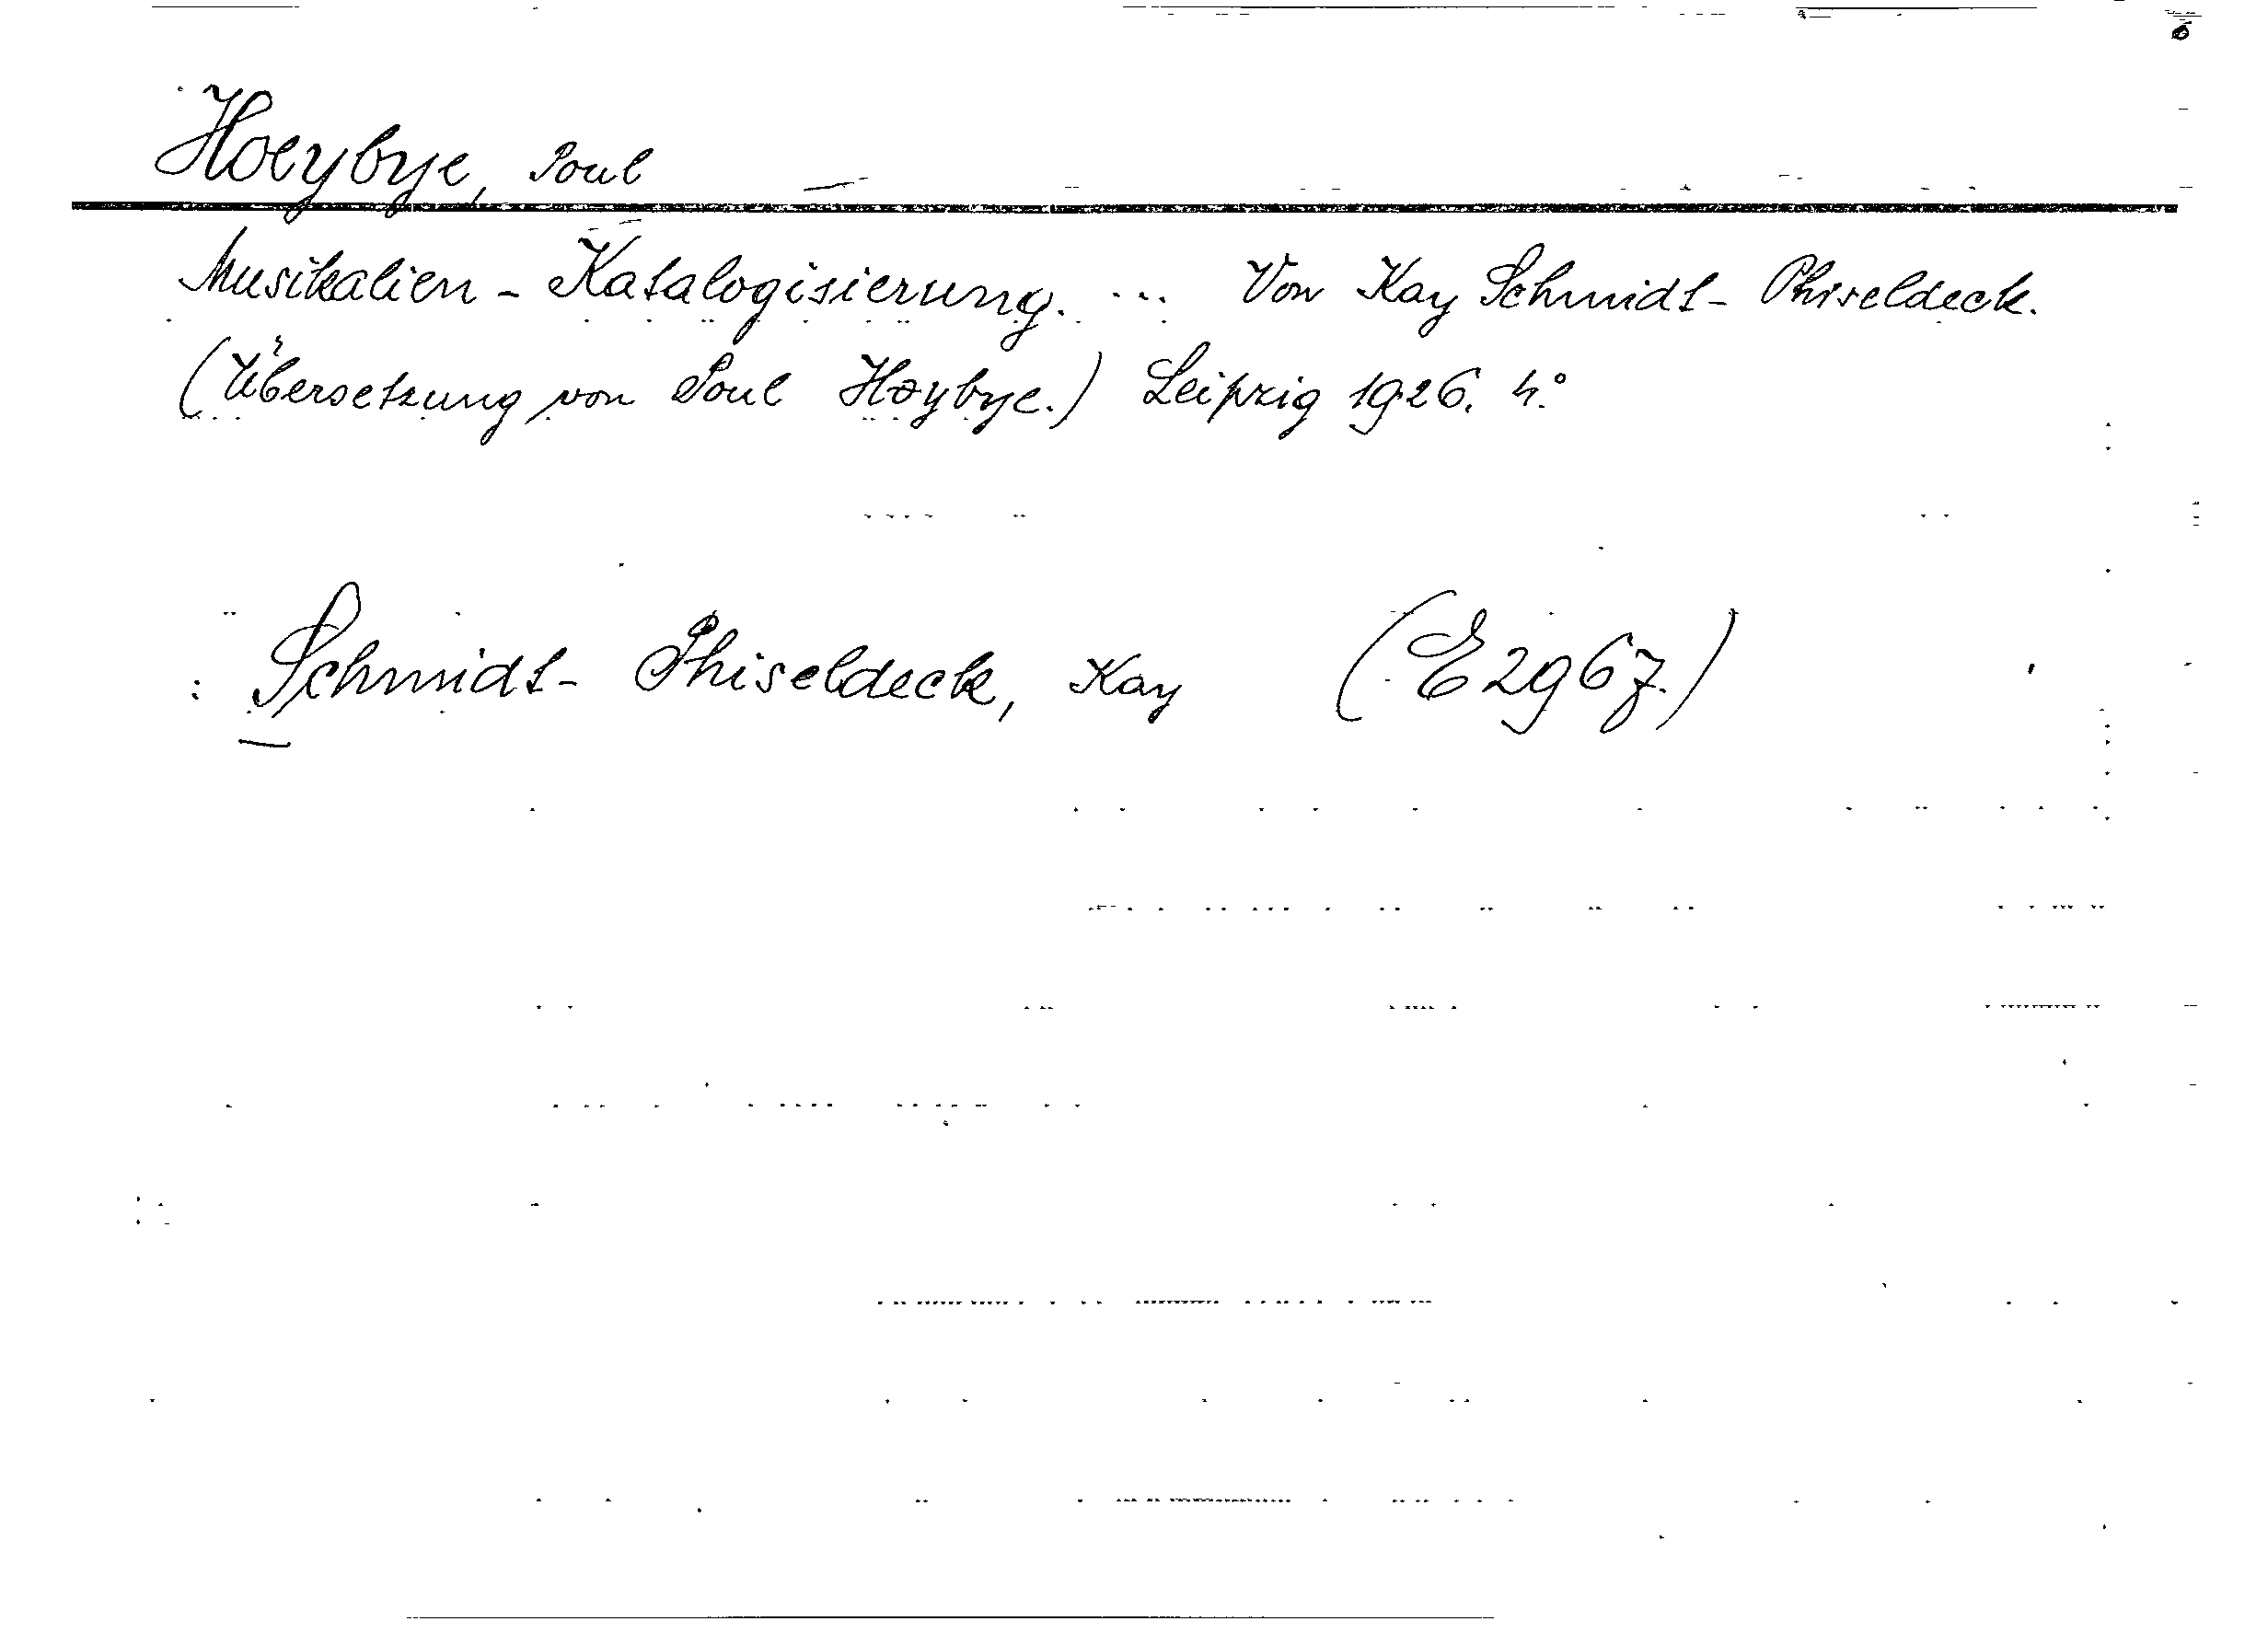 Hoeybye, Poul
Musikalien - Katalogisierung. ... Von Kay Schmidt - Phiseldeck.
(Übersetzung von Poul Høybye.) Leipzig 1926. 4.°
: Schmidt - Phiseldeck, Kay (E2967.)